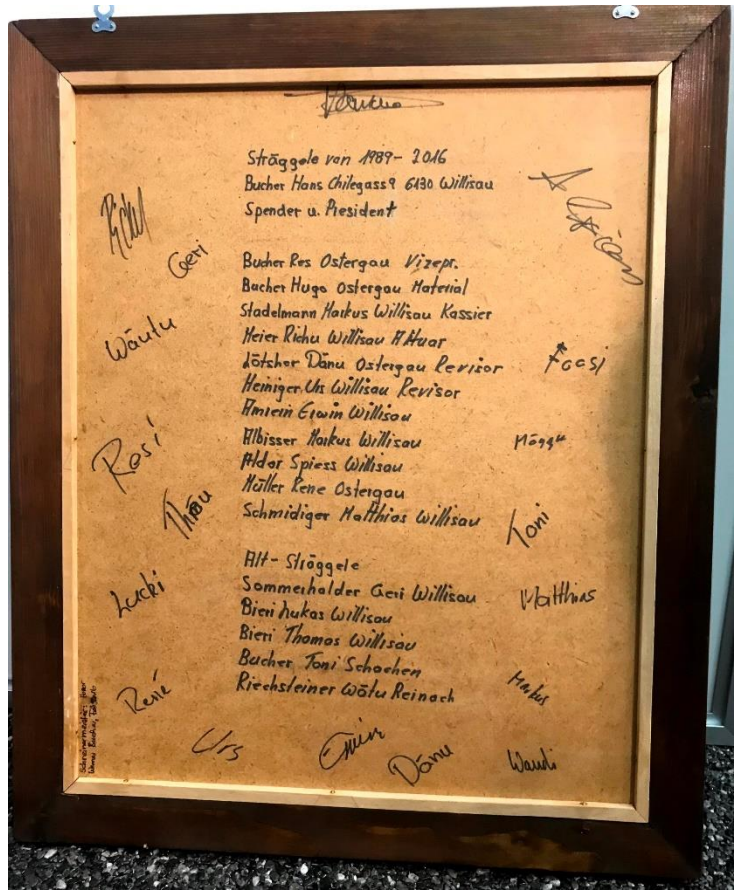 Sträggele von 1989-2016
Bucher Hans Chilegass 9 6130 Willisau
Spender u. President
Richi
Geri
Bucher Res Ostergau Vizepr.
Bucher Hugo Ostergau Material
Stadelmann Markus Willisau Kassier
Wäutu
Meier Richu Willisau Aktuar
Lötsher Dänu Ostergau Revisor
Heiniger Urs Willisau Revisor
Amrein Erwin Willisau
Albisser Markus Willisau
Aldor Spiess Willisau
Müller Rene Ostergau
Schmidiger Matthias Willisau
Resi
Thöm
Toni
Alt-Sträggele
Sommerhalder Geri Willisau
Bieri Lukas Willisau
Bieri Thomas Willisau
Bucher Toni Schachen
Riechsteiner Wätu Reinach
Lucki
Matthias
René
Markus
Urs
Erwin
Dänu
Wauti